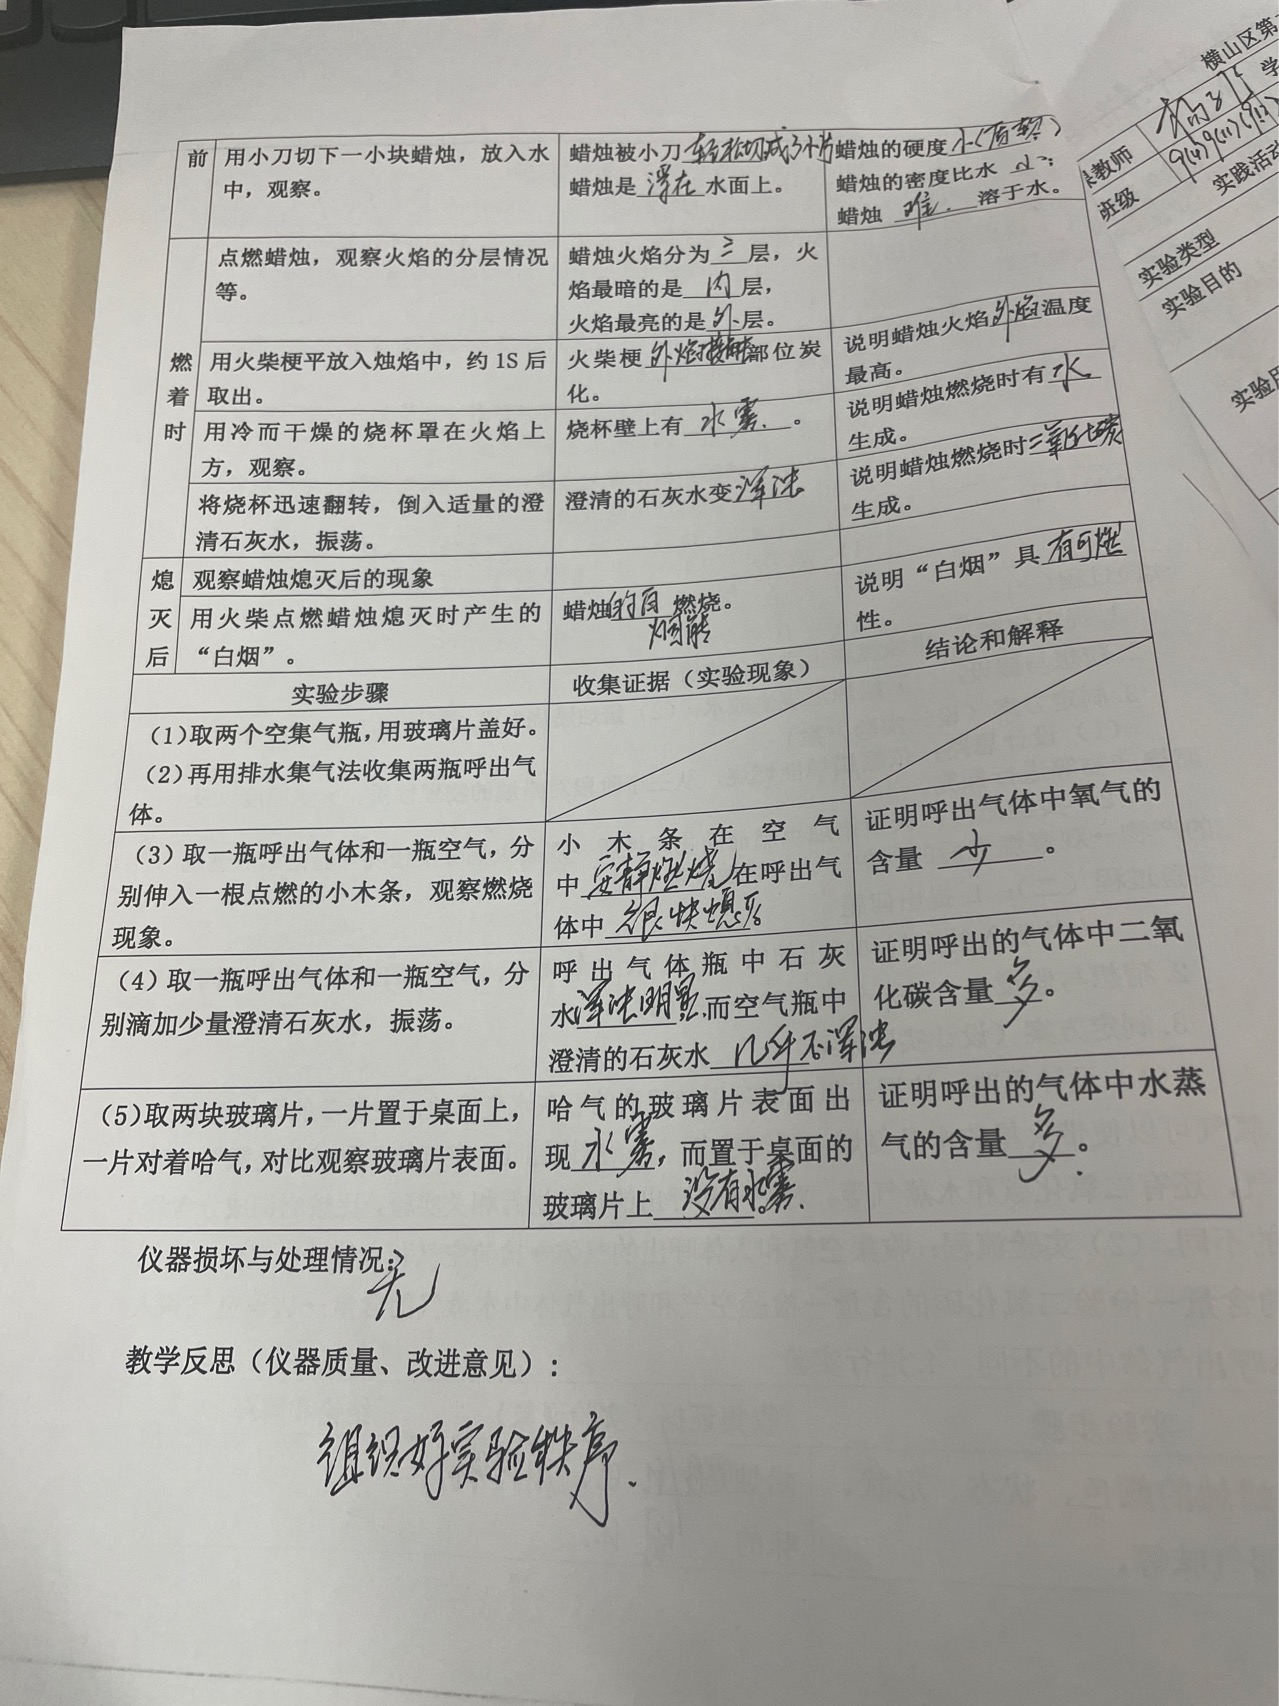 前 用小刀切下一小块蜡烛，放入水 蜡烛被小刀轻松切成了小片 蜡烛的硬度小(质软)
中，观察。 蜡烛是浮在水面上。 蜡烛的密度比水小；
蜡烛难溶于水。
点燃蜡烛，观察火焰的分层情况 蜡烛火焰分为三层，火
等。 焰最暗的是内层，
火焰最亮的是外层。
燃着时
用火柴梗平放入烛焰中，约1S后 火柴梗外焰接触部位炭 说明蜡烛火焰外焰温度
取出。 化。 最高。
用冷而干燥的烧杯罩在火焰上 烧杯壁上有水雾。 说明蜡烛燃烧时有水
方，观察。 生成。
将烧杯迅速翻转，倒入适量的澄 澄清的石灰水变浑浊 说明蜡烛燃烧时二氧化碳
清石灰水，振荡。 生成。
熄灭后
观察蜡烛熄灭后的现象
用火柴点燃蜡烛熄灭时产生的 蜡烛的白烟能燃烧。 说明“白烟”具有可燃
“白烟”。 性。
实验步骤 收集证据（实验现象） 结论和解释
（1）取两个空集气瓶，用玻璃片盖好。
（2）再用排水集气法收集两瓶呼出气
体。
（3）取一瓶呼出气体和一瓶空气，分 小木条在空气 证明呼出气体中氧气的
别伸入一根点燃的小木条，观察燃烧 中安静燃烧在呼出气 含量少。
现象。 体中很快熄灭
（4）取一瓶呼出气体和一瓶空气，分 呼出气体瓶中石灰 证明呼出的气体中二氧
别滴加少量澄清石灰水，振荡。 水浑浊明显.而空气瓶中 化碳含量多。
澄清的石灰水几乎不浑浊
（5）取两块玻璃片，一片置于桌面上， 哈气的玻璃片表面出 证明呼出的气体中水蒸
一片对着哈气，对比观察玻璃片表面。 现水雾，而置于桌面的 气的含量多。
玻璃片上没有水雾。
仪器损坏与处理情况：
无
教学反思（仪器质量、改进意见）：
组织好实验秩序.
横山区第
教师
班级
实践活动
实验类型
实验目的